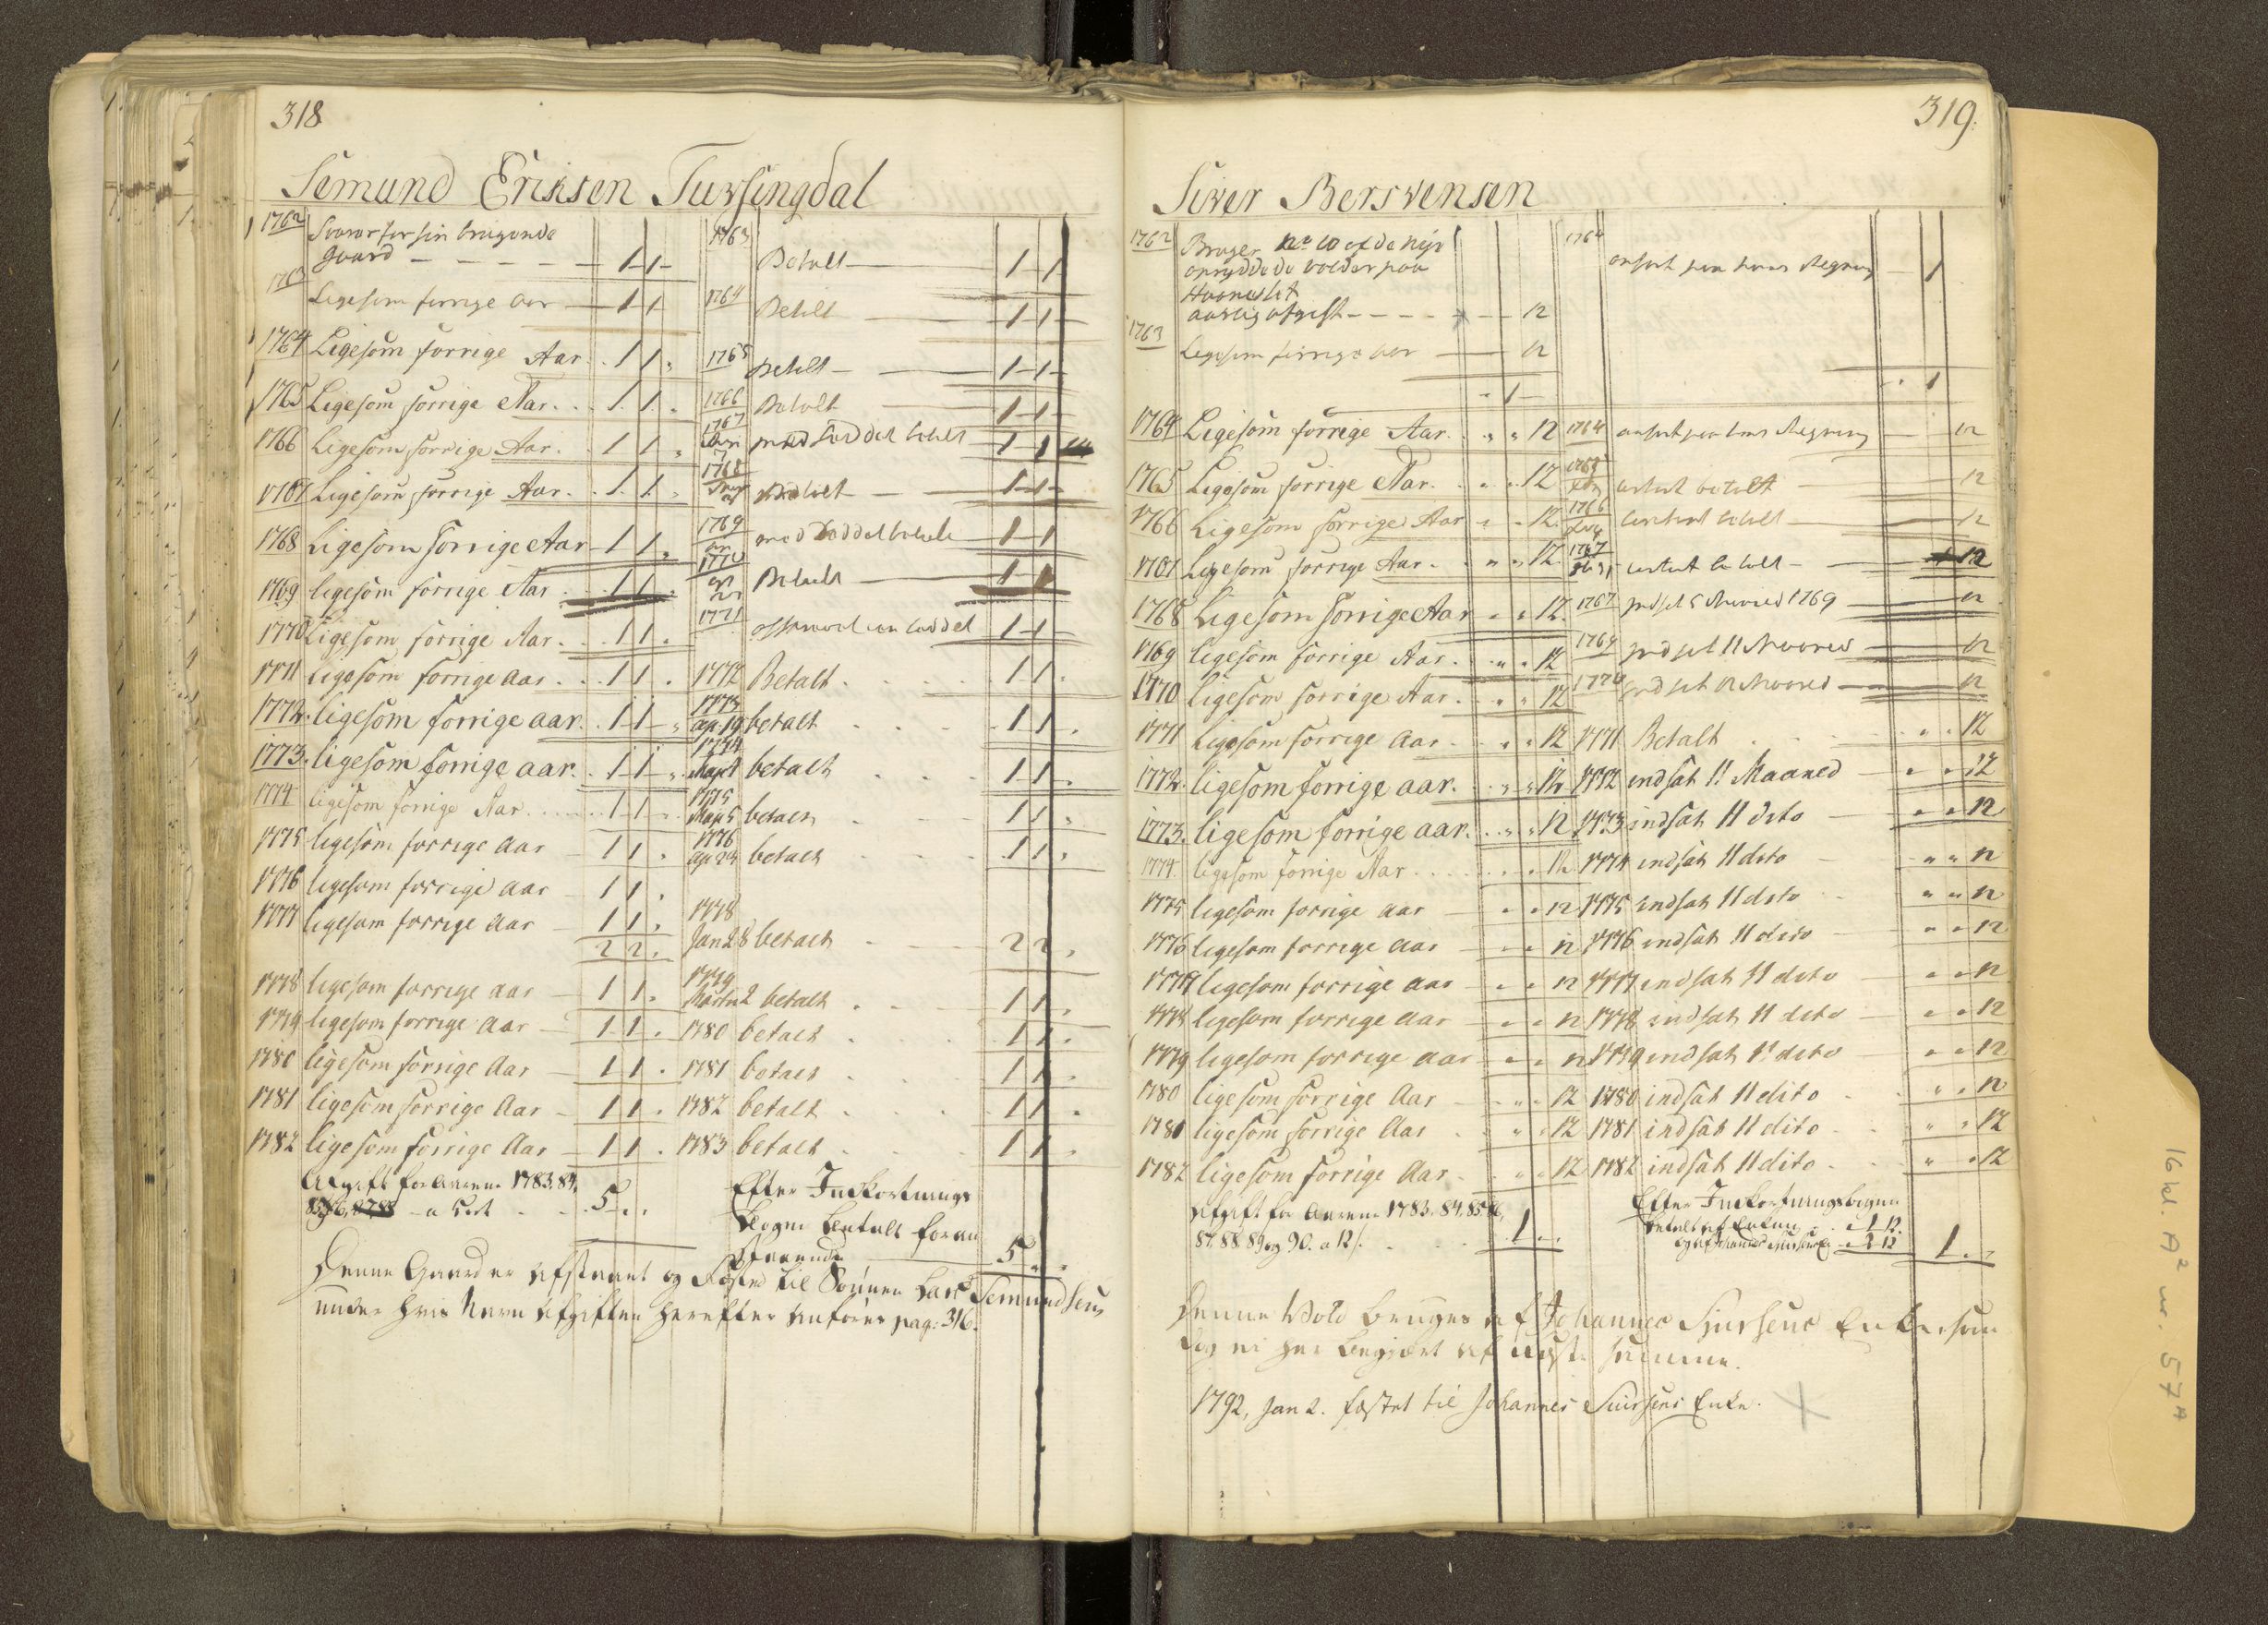 318
Semund Eriksen Tufsingdal
1762 Svarer for sin brugende
Gaard - - - - - 1 1 -
1763 Ligesom forrige aar 1 1 -
1764 Ligesom forrige Aar. 1 1 „
1765 Ligesom forrige Aar. . . 1. 1. „
1766 Ligesom forrige Aar. . 1 1 „
1767 Ligesom forrige Aar. . 1. 1. „
1768 Ligesom forrige Aar 1 1 „
1769 ligesom forrige Aar . . . 1 1 „
1770 Ligesom forrige Aar. . . 1 1 .
1771 ligesom forrige aar . . . 1 1 .
1772. ligesom forrige aar. . 1 1 „
1773. ligesom forrige aar. . 1 1 „
1774 ligesom forrige Aar . . . . 1 1 „
1775 ligesom forrige aar - 1 1 .
1776 ligesom forrige aar - 1 1 .
1777 ligesom forrige aar - 1 1 .
2 2 .
1778 ligesom forrige aar - 1 1 .
1779 ligesom forrige aar - 1 1 .
1780 ligesom forrige Aar - 1 1 .
1781 ligesom forrige Aar - 1 1 .
1782 ligesom forrige Aar - 1 1 .
Afgift for Aarene 1783. 84,
85, 86, - a Ort . . 5 . .
1763 Betalt 1 1
1764 Betalt 1 1 -
1765 Betalt 1 1 -
1766 Betalt 1 1 -
1767 med betalt 1 1
1768 betalt 1 1 -
1769 med betalt 1 1
1770 Betalt 1 1
1771 1 1
1772 Betalt . . . . . 1 1 .
1773
ap. 19 betalt . . . 1 1 .
1774
betalt . . . 1 1 .
1775
Maj 5 betalt . . . 1 1 .
1776
ap. 29 betalt . . . 1 1 .
1778
Jan 28 betalt . . . 2 2 .
1779
Martii 2 betalt . . . 1 1 .
1780 betalt . . . 1 1 .
1781 betalt . . . 1 1 .
1782 betalt . . . . 1 1 .
1783 betalt . . . . 1 1 .
Efter Indkortnings
bogen betalt foran
staaende 5 „ „
Denne Gaard er afstaaet og fæsted til Sönnen Lars Semundsen,
under hvis Navn Afgiften herefter anföres pag: 316.
319.
Siver Bersvensen
1762 Bruger No 10 af de nye
opryddede volder paa
aarlig afgift - - - - 12
1763 Ligesom forrige aar 12
„ 1 -
1764 Ligesom forrige Aar. . „ „ 12
1765 Ligesom forrige Aar. . „ „ 12
1766 Ligesom forrige Aar „ „ 12.
1767 Ligesom forrige Aar. „ „ 12.
1768 Ligesom forrige Aar „ „ 12.
1769 ligesom forrige Aar. . „ „ 12
1770 ligesom forrige Aar. . „ „ 12
1771 Ligesom forrige aar. . „ „ 12
1772. ligesom forrige aar. . „ „ 12
1773. ligesom forrige aar. . . „ „ 12
1774 ligesom forrige Aar . . . . . „ 12
1775 ligesom forrige aar - „ „ 12
1776 ligesom forrige aar - „ „ 12
1777 ligesom forrige aar - „ „ 12
1778 ligesom forrige aar - „ „ 12
1779 ligesom forrige aar - „ „ 12
1780 ligesom forrige Aar - „ „ 12
1781 ligesom forrige Aar . „ „ 12
1782 ligesom forrige Aar . „ „ 12
Afgift for Aarene 1783. 84. 85. 86,
87. 88. 89 og 90. a 12 /. . . 1 . .
1764 anfört paa hans Regning 1
„ . 1
1764 anfört paa hans Regning 12
1765 betalt 12
1766 betalt 12
1767 betalt 12
1767 indsat 5 Maaned 1769 12
1769 indsat 11 Maaned 12
1770 indsat 12 Maaned 12
1771 Betalt . . . „ „ 12
1772 indsat 11 Maaned „ „ 12
1773 indsat 11 dito „ „ 12
1774 indsat 11 dito „ „ 12
1775 indsat 11 dito „ „ 12
1776 indsat 11 dito „ „ 12
1777 indsat 11 dito „ „ 12
1778 indsat 11 dito „ „ 12
1779 indsat 11 dito „ „ 12
1780 indsat 11 dito . „ „ 12
1781 indsat 11 dito . . „ „ 12
1782 indsat 11 dito . . „ „ 12
Efter Indkortningsbogen
betalt af Enken
og af Johannes 1 . „
Denne Vold bruges af Johannes Siursens Enke, som
dog ei har begiært at fæste samme.
1792, Jan 2. fæstet til Johannes Siursens Enke.
16 kl. A2 nr. 57A